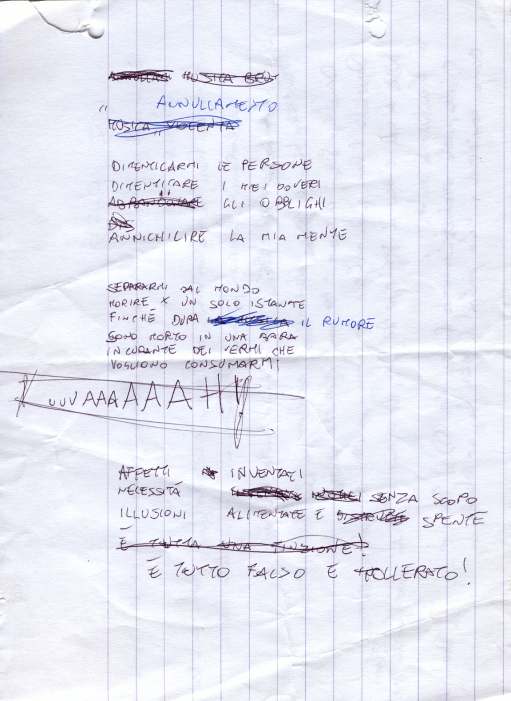 MUSICA
" ANNULLAMENTO
MUSICA VIOLENTA
DIMENTICARMI LE PERSONE
DIMENTICARE I MIEI DOVERI
ABBANDONARE GLI OBBLIGHI
ANNICHILIRE LA MIA MENTE
SEPARARMI DAL MONDO
MORIRE X UN SOLO ISTANTE
FINCHÉ DURA IL RUMORE
SONO MORTO IN UNA BARA
INCURANTE DEI VERMI CHE
VOGLIONO CONSUMARMI
AFFETTI INVENTATI
NECESSITÀ SENZA SCOPO
ILLUSIONI ALIMENTATE E SPENTE
È TUTTA UNA FINZIONE!
È TUTTO FALSO E TOLLERATO!